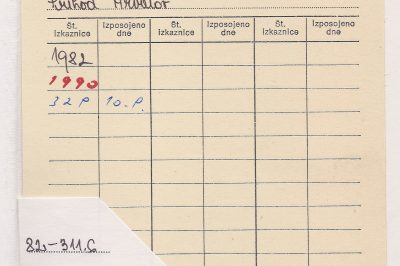 Prihod
Št. izkaznice Izposojeno dne Št. izkaznice Izposojeno dne Št. izkaznice Izposojeno dne
1982
1990
32 P 10. P.
82.-311.6